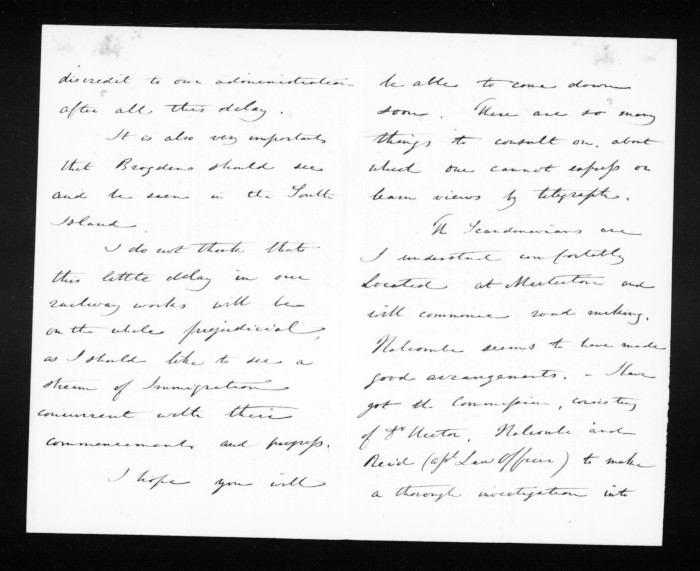 discredit to our administration
after all this delay.
It is also very important
that Brogdens should see
and be seen in the South
Island.
I do not think that
this little delay in our
railway works will be
on the whole prejudicial,
as I should like to see a
stream of Immigration
concurrent with their
commencement and progress.
I hope you will
be able to come down
soon. There are so many
things to consult on, about
which one cannot express or
learn views by telegraph.
The Scandinavians are
I understand comfortably
located at and
will commence road making.
Halcombe seems to have made
good arrangements. - I have
got the Commission, consisting
of Dr Hector, Halcombe and
Reid (asst Law Officer) to make
a thorough investigation into